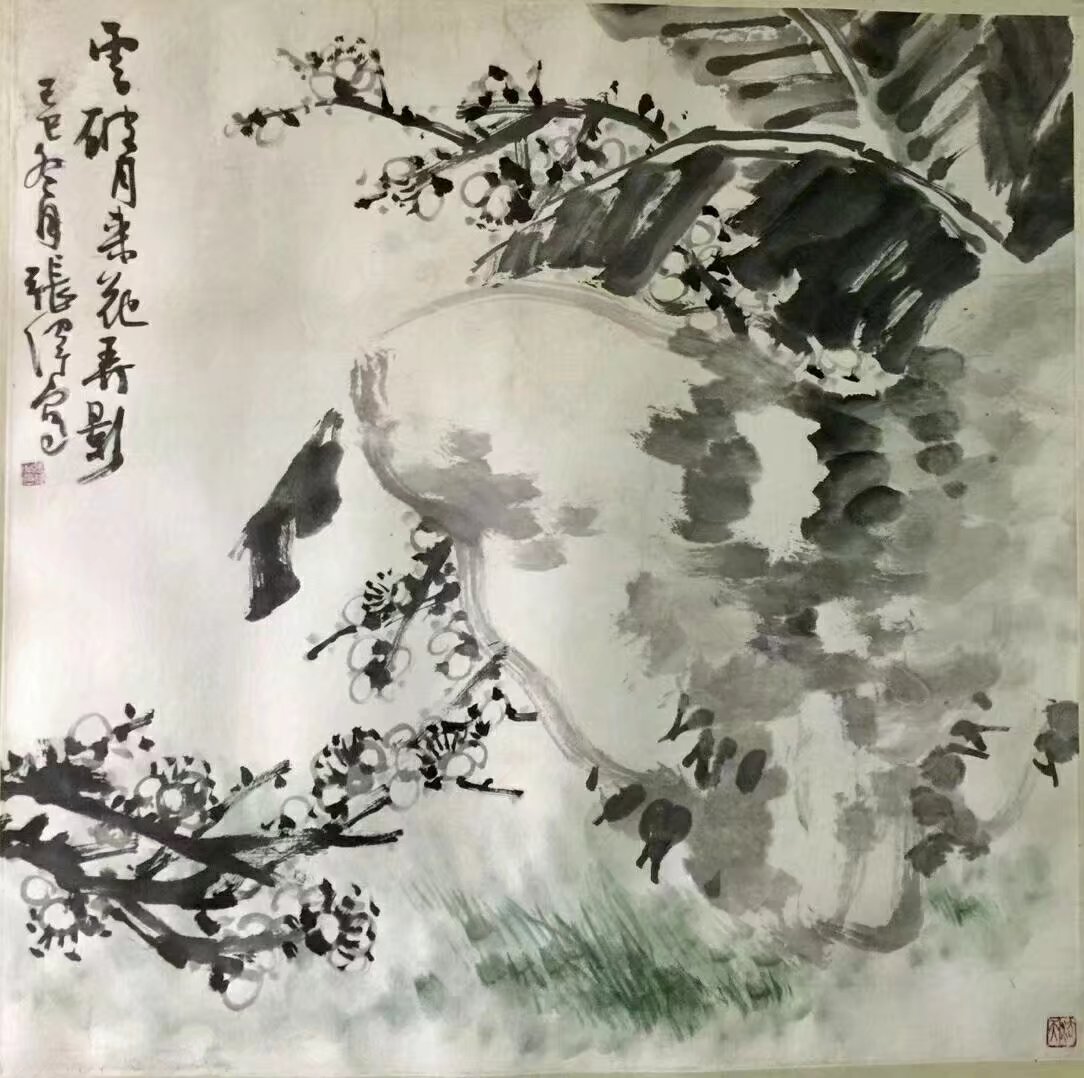 雲破月来花弄影
己巳冬月張澤寫